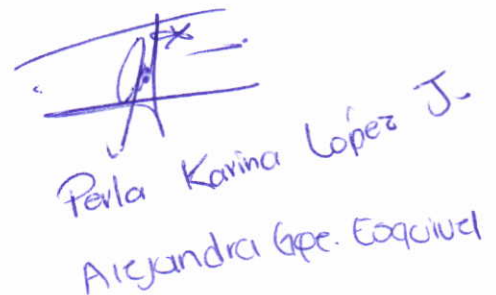 Perla Karina López J.
Alejandra Gpe. Esquivel